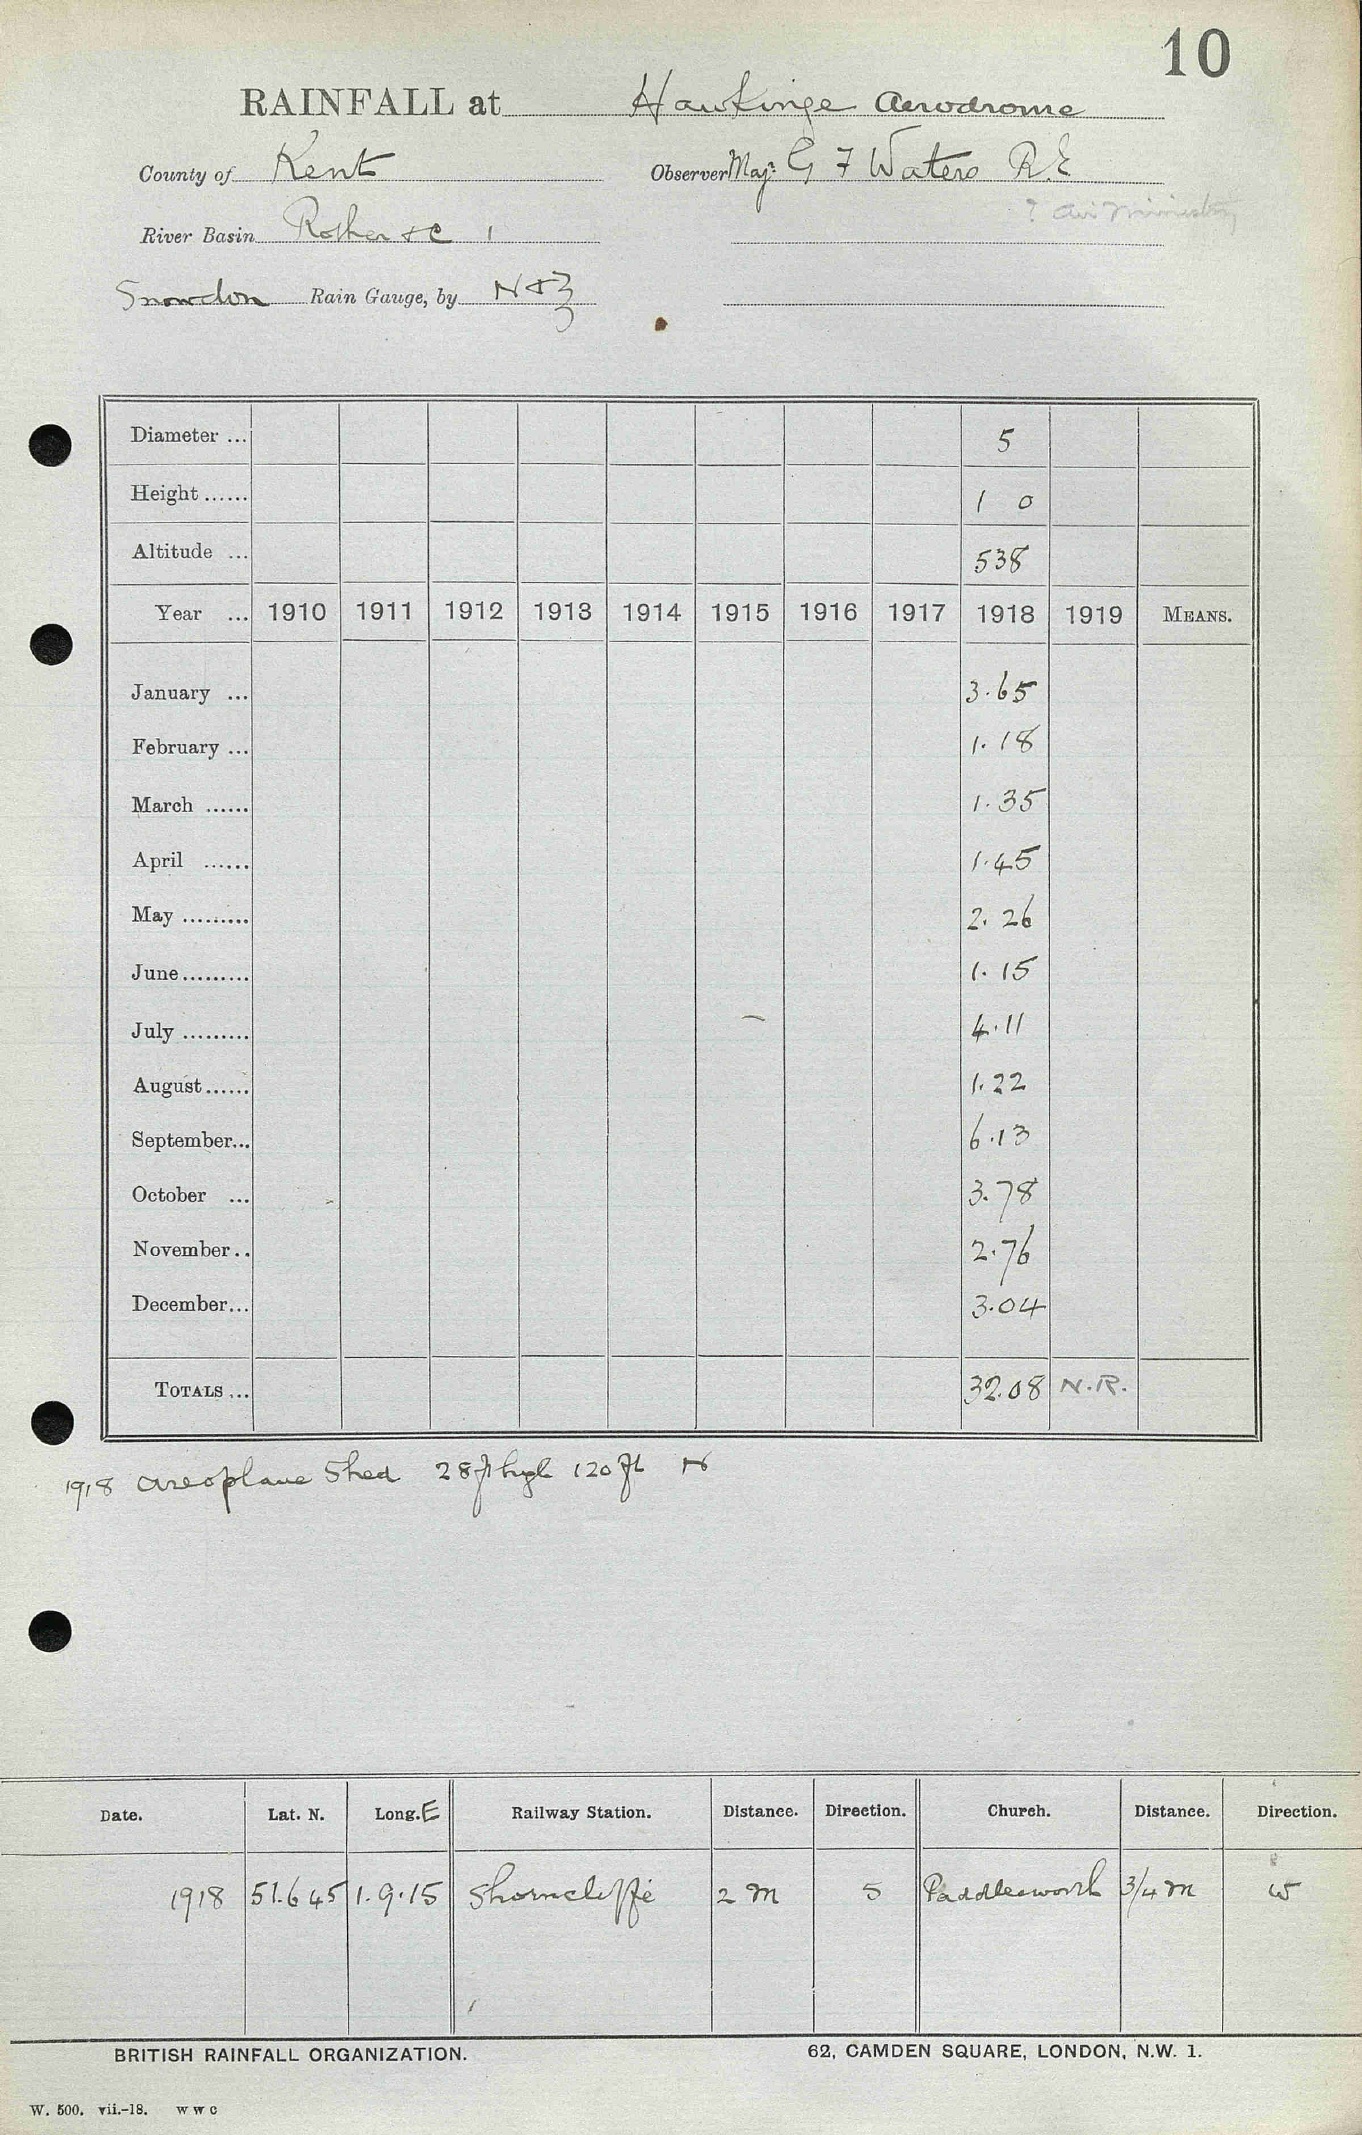 10
RAINFALL at Hawkinge Aerodrome
County of Kent Observer Majr. G F Waters R.E
? Air Ministry
River Basin Rother &c 1
Snowdon Rain Gauge, by N & Z
Diameter ... 5
Height ...... 1 0
Altitude ... 538
Year ... 1910 1911 1912 1913 1914 1915 1916 1917 1918 1919 MEANS.
January ... 3.65
February ... 1.18
March ...... 1.35
April ...... 1.45
May ......... 2.26
June ......... 1.15
July ......... 4.11
August ...... 1.22
September... 6.13
October ... 3.78
November .. 2.76
December... 3.04
TOTALS ... 32.08 N.R.
1918 areoplane Shed 28 ft high 120 ft N
Date. Lat. N. Long. E Railway Station. Distance. Direction. Church. Distance. Direction.
1918 51.6 45 1.9.15 Shorncliffe 2 m S Paddlesworth 3/4 m W
BRITISH RAINFALL ORGANIZATION. 62, CAMDEN SQUARE, LONDON, N.W. 1.
W. 500. vii.-18. w w c